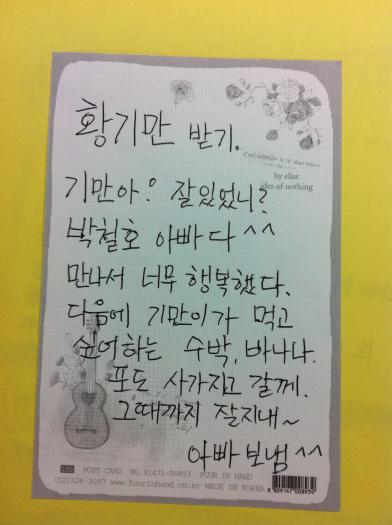 황기만 받기.
by elise
ides of nothing
기만아! 잘있었니?
박철호 아빠다 ^^
만나서 너무 행복했다.
다음에 기만이가 먹고
싶어하는 수박, 바나나.
포도 사가지고 갈께.
그때까지 잘지내~
아빠 보냄 ^^
100 POST CARD NO.91471-00893 FOUR IN HAND
(02)326-3097 www.fourinhand.co.kr MADE IN KOREA
8 809147 008939